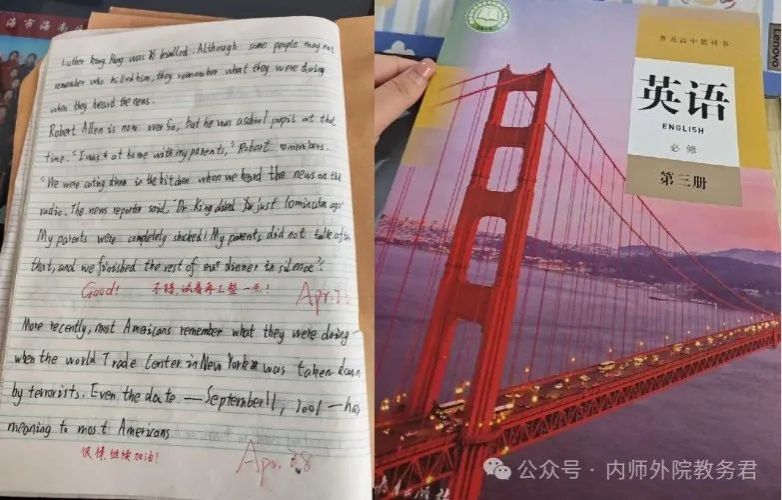 Luther King. King was killed. Although some people may not
remember who killed him, they remember what they were doing
when they heard the news.
Robert Allen is now over 50, but he was a school pupil at the
time. "I was at home with my parents," Robert remembers.
"We were eating dinner in the kitchen when we heard the news on the
radio. The news reporter said, Dr. King died just 10 minutes ago.
My parents were completely shocked! My parents did not talk after
that, and we finished the rest of our dinner in silence".
Good! 不错,试着再工整一点!
Apr.
More recently, most Americans remember what they were doing
when the world Trade Center in New York was taken down
by terrorists. Even the date — September 11, 2001 — has
meaning to most Americans
很棒,继续加油!
Apr. 28
普通高中教科书
英语
ENGLISH
必修
第三册
Lenovo
公众号 · 内师外院教务君